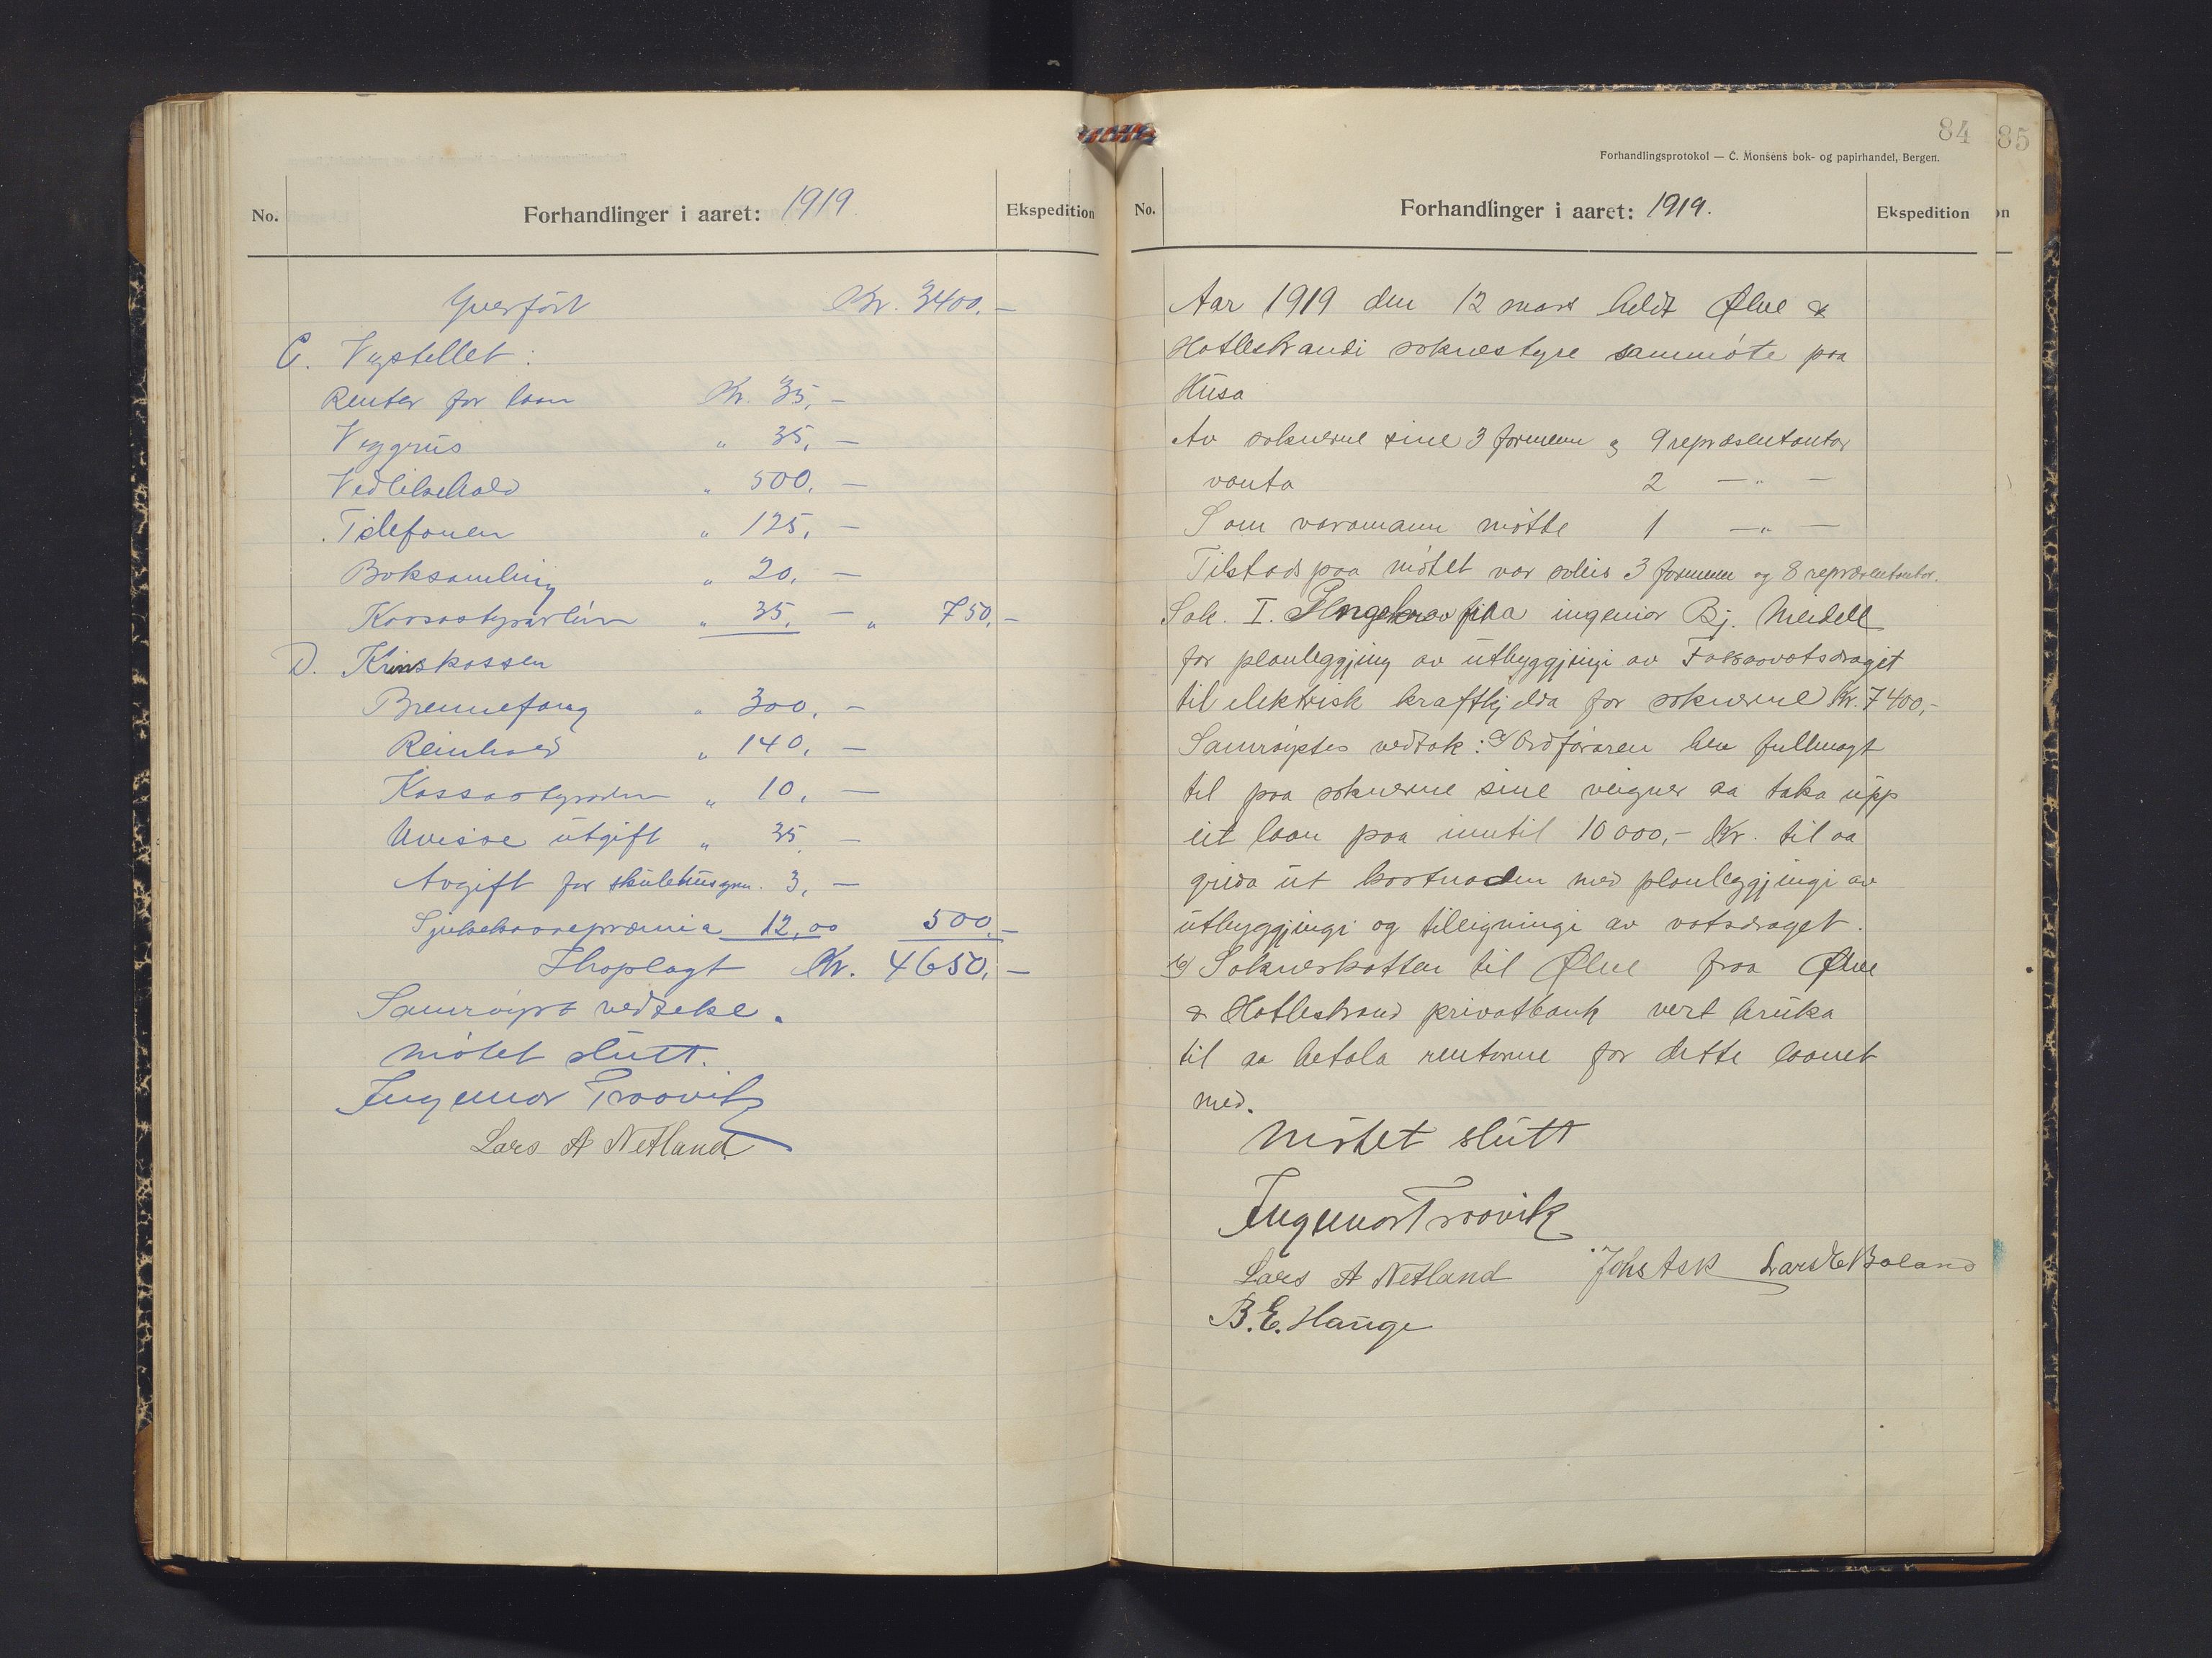 No.
Forhandlinger i aaret: 1919.
Ekspedition
Yverført Kr. 3400,-
C. Vegstellet:
Renter for laan Kr. 35,-
Veggrus " 35,-
Vedlikehald " 500,-
Telefonen " 125,-
Boksamling " 20,-
Kassastyrarlön " 35,- " 750,-
D. Krinskassen
Brennefang " 300,-
Reinhald " 140,-
Kassastyraren " 10,-
Uvisse utgift " 35,-
Avgift for skulehusgrn. 3,-
Sjukekassepræmia 12,00 500,-
Ihoplagt Kr. 4650,-
Samröyst vedteke.
Mötet slutt.
Ingemar Traavik
Lars A Netland
84
85
Forhandlingsprotokol — C. Monsens bok- og papirhandel, Bergen.
No.
Forhandlinger i aaret: 1919.
Ekspedition
on
Aar 1919 den 12 mars heldt Ølve &
Hatlestrandi soknestyre sammöte paa
Husa
Av soknerne sine 3 formenn og 9 repræsentantar
vanta 2 — " —
Som varamann mötte 1 — " —
Tilstads paa mötet var soleis 3 formenn og 8 repræsentantar.
Sak. I. Pengekrav fraa ingeniör Bj. Meidell
for planleggjing av utbyggjingi av Fossavatsdraget
til elektrisk kraftkjelda for soknerne Kr. 7400,-
Samröystes vedtak: a/ Ordföraren hev fullmagt
til paa soknerne sine veigner aa taka upp
eit laan paa inntil 10 000,- Kr. til aa
greida ut kostnaden med planleggjingi av
utbyggjingi og tileigningi av vatsdraget.
b/ Sokneskatten til Ølve fraa Ølve
& Hatlestrand privatbank vert bruka
til aa betala rentorne for dette laanet
med.
Mötet slutt
Ingemar Traavik
Lars A Netland Johs Ask Lars E Baland
B. E. Hauge